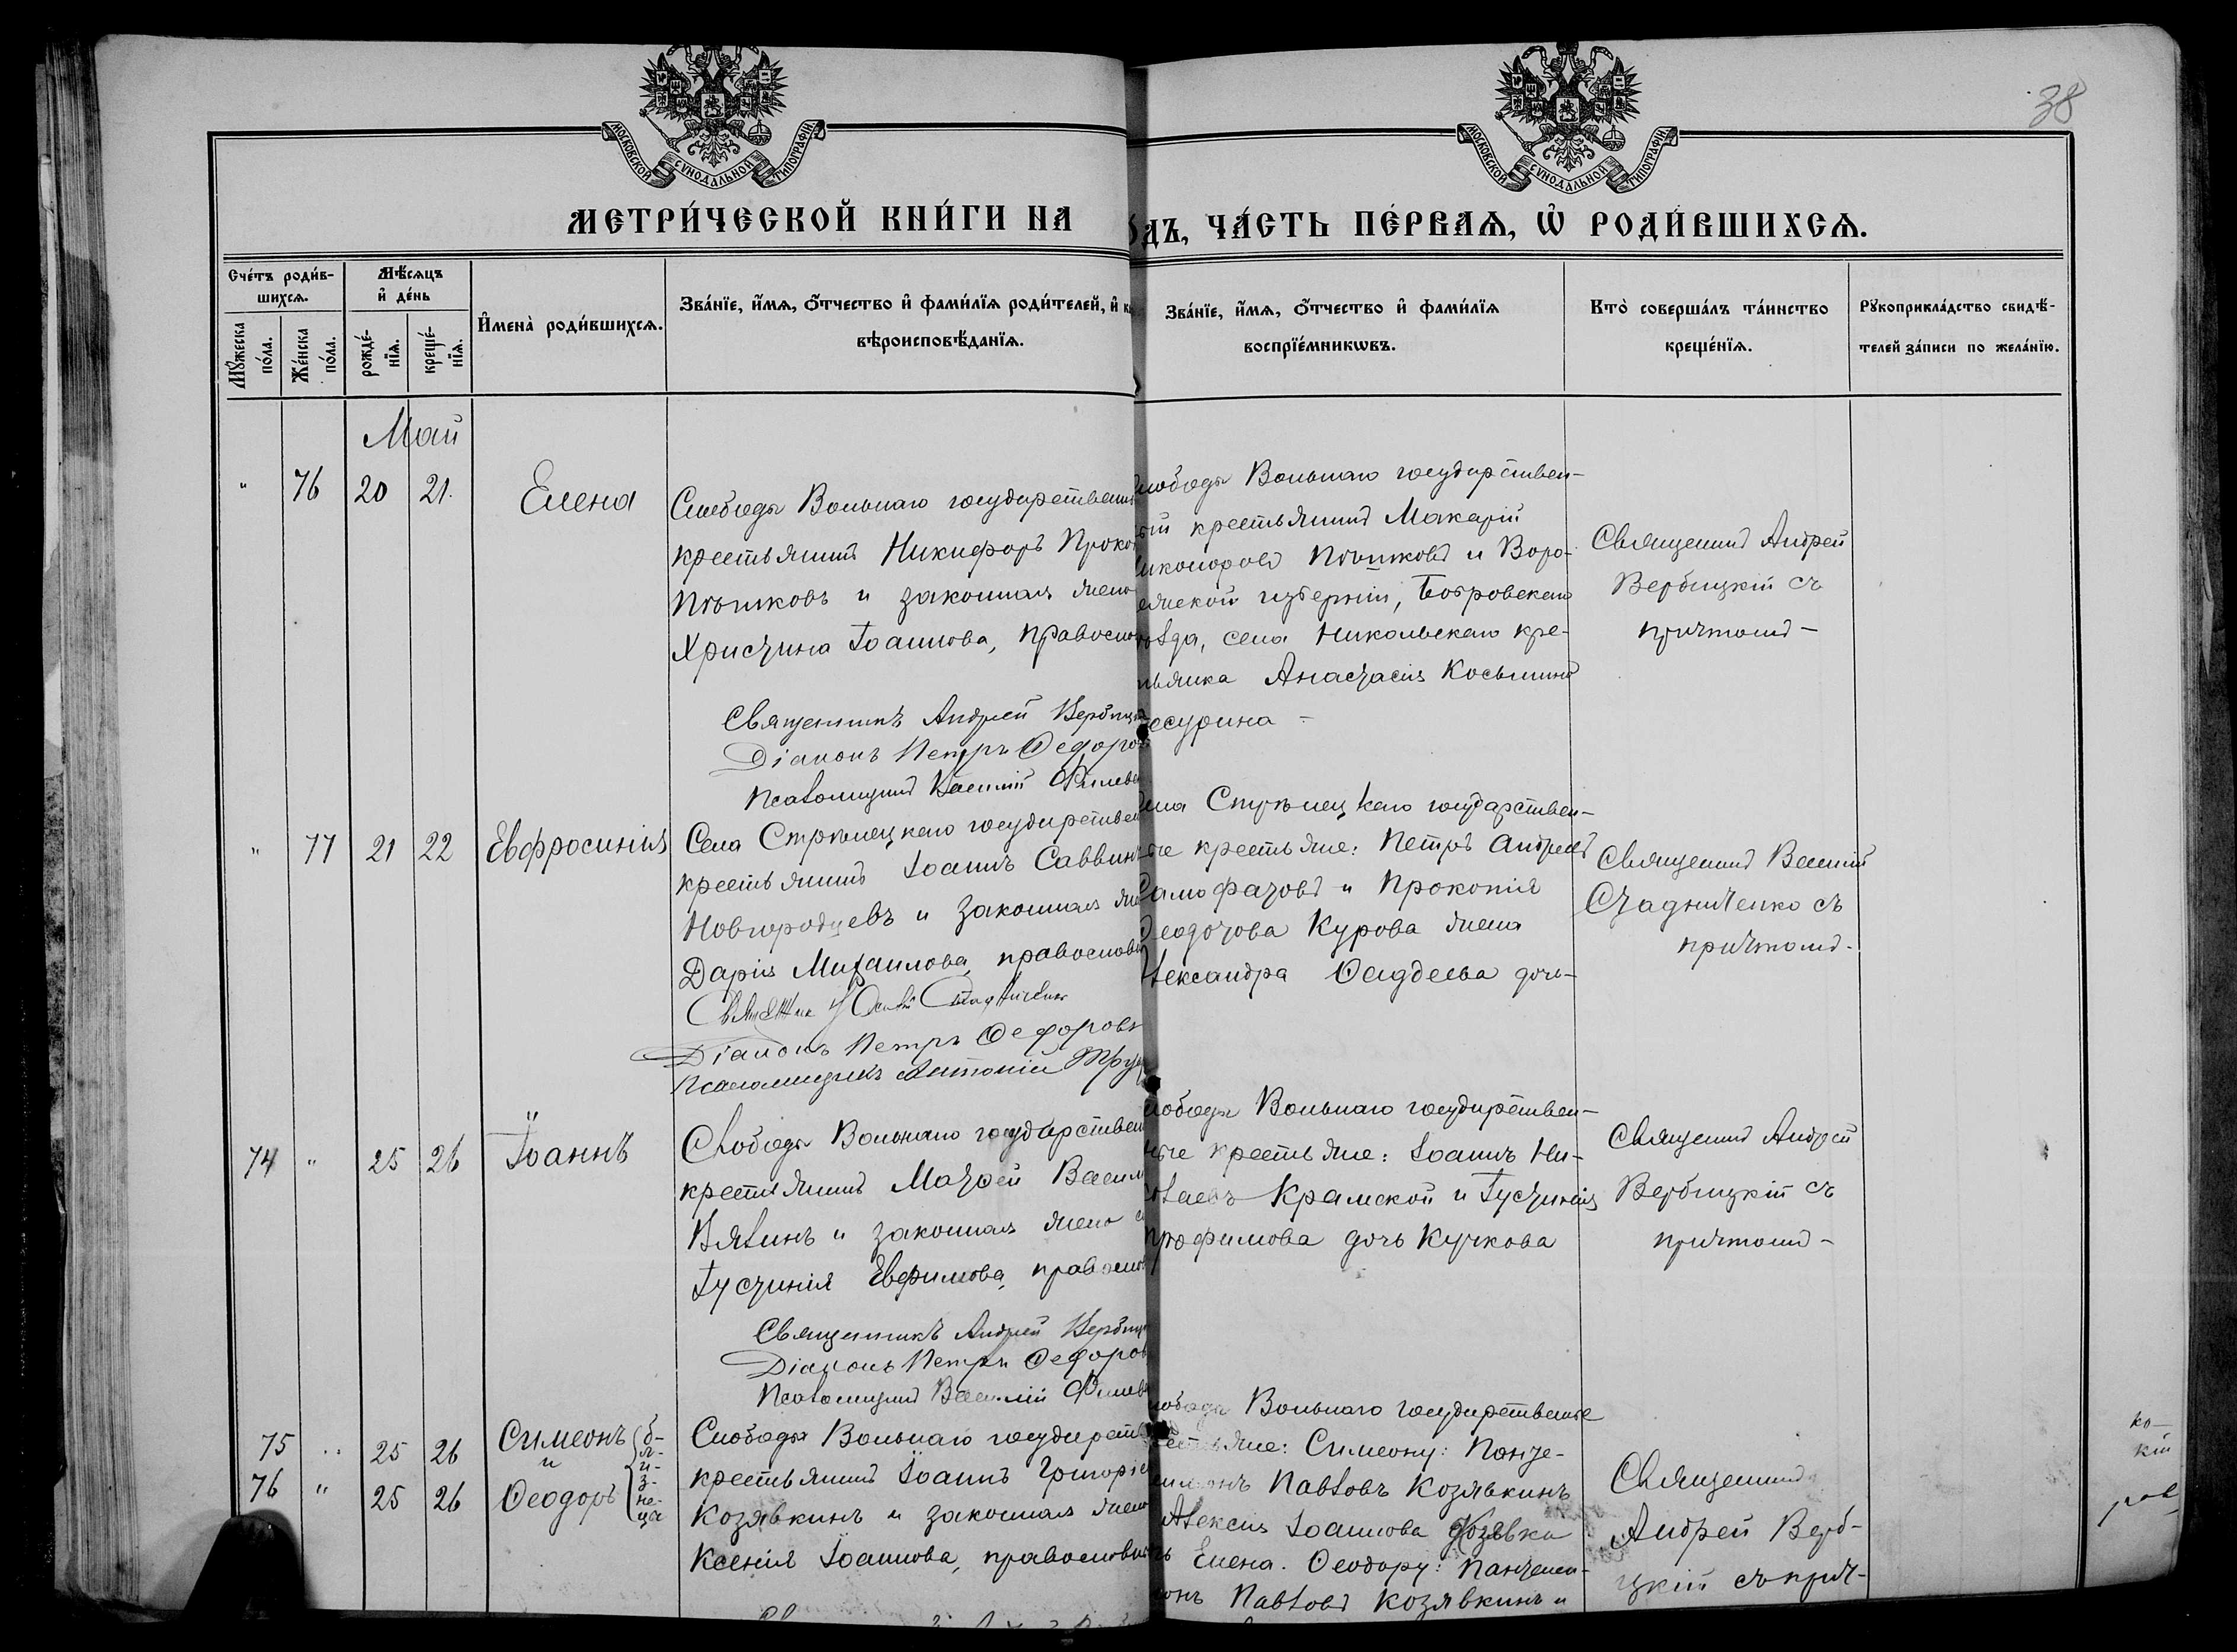 38
МОСКОВСКОЙ СѴНОДАЛЬНОЙ ТИПОГРАФІИ
МОСКОВСКОЙ СѴНОДАЛЬНОЙ ТИПОГРАФІИ
МЕТРИ́ЧЕСКОЙ КНИ́ГИ НА
ДЪ, ЧА́СТЬ ПЕ́РВАѦ, Ѡ РОДИ́ВШИХСѦ.
Сче́тъ роди́в-
шихсѧ.
Мꙋ́жеска по́ла.
Же́нска по́ла.
Мѣ́сѧцъ
и҆ де́нь
рожде́-
нїѧ.
креще́-
нїѧ.
И҆мена̀ роди́вшихсѧ.
Зва́нїе, и҆́мѧ, ѻ҆́тчество и҆ фами́лїѧ роди́телей, и҆
вѣроисповѣ́данїѧ.
Зва́нїе, и҆́мѧ, ѻ҆́тчество и҆ фами́лїѧ
воспрїе́мникѡвъ.
Кто̀ соверша́лъ та́инство
креще́нїѧ.
Рꙋкоприкла́дство свидѣ́-
телей за́писи по жела́нїю.
Май
" 76 20 21. Елена
Слободы Вольнаго государственн
крестьянинъ Никифоръ Проко
Пѣтиковъ и законная жена
Христина Іоаннова, православ
Священникъ Андрей Вербиц
Діаконъ Петръ Ѳедоров
Псаломщикъ Василій Филев
лободы Вольнаго государствен-
ый крестьянинъ Макарій
Никоноровъ Пѣтиковъ и Воро-
нежской губерніи, Бобровскаго
уѣзда, села Никольскаго кре-
тьянка Анастасія Косьмина
Священникъ Андрей
Вербицкій съ
причтомъ-
" 77 21 22 Евфросинія
Села Стрѣлецкаго государствен
крестьянинъ Іоаннъ Саввинъ
Новгородцевъ и законная же
Дарія Михаилова, православн
Священникъ
Діаконъ Петръ Ѳедоровъ
Псаломщикъ Антоній Тру
ела Стрѣлецкаго государствен-
ые крестьяне: Петръ Андреевъ
Самофаловъ и Прокопія
Ѳеодотова Курова жена
Александра Ѳаддеева дочь-
Священникъ Василій
Стадниченко съ
причтомъ-
74 " 25 26 Іоаннъ
Слободы Вольнаго государствен
крестьянинъ Матѳей Васил
Вялинъ и законная жена
Іустинія Евфимова, православ
Священникъ Андрей Вербиц
Діаконъ Петръ Ѳедоров
Псаломщикъ Василій Филев
лободы Вольнаго государствен-
ные крестьяне: Іоаннъ Ни-
колаевъ Крамской и Іустинія
Трофимова дочь Кучкова
Священникъ Андрей
Вербицкій съ
причтомъ-
75 " 25 26 Симеонъ
и
76 " 25 26 Ѳеодоръ
б-
л-
и-
з-
не-
ца
Слободы Вольнаго государств
крестьянинъ Іоаннъ Григоріе
Козявкинъ и законная жена
Ксенія Іоаннова, православн
лободы Вольнаго государственные
крестьяне: Симеону: Панте-
леимонъ Павловъ Козявкинъ
Алексія Іоаннова Козявки
Елена. Ѳеодору: Пантелеи-
монъ Павловъ Козявкинъ и
Священникъ
Андрей Верб-
цкій съ прич-
ко-
кій